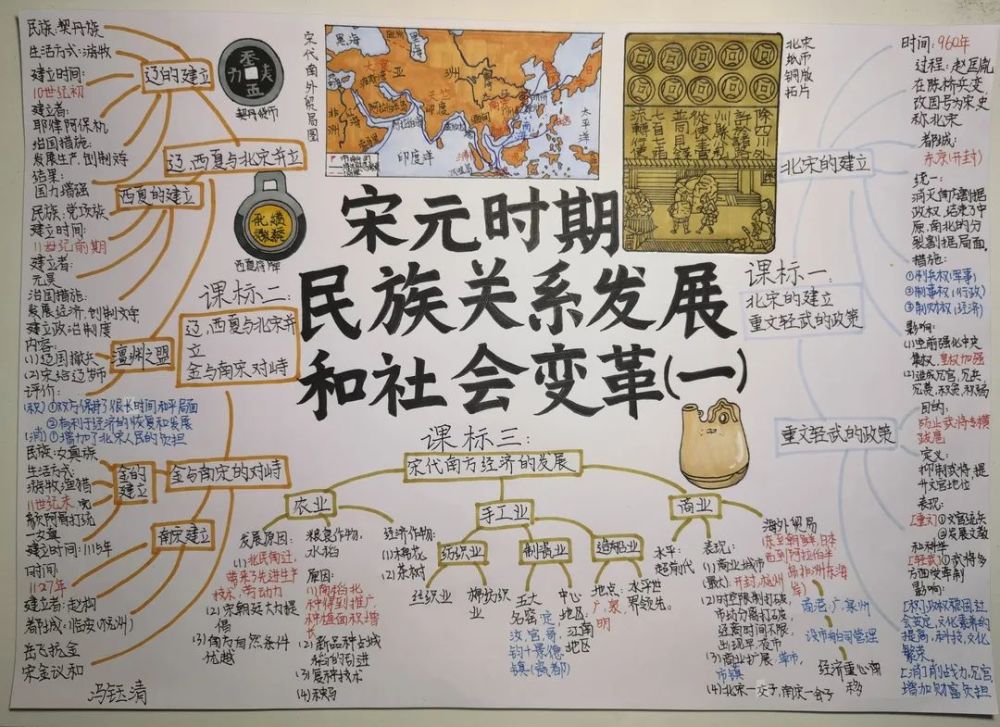 宋元时期
民族关系发展
和社会变革(一)
宋代海外贸易图
黑海
黑海
印度洋
太平洋
契丹货币
西夏符牌
北宋
纸币
铜版
拓片
民族:契丹族
生活方式:游牧
建立时间:
10世纪初
建立者:
耶律阿保机
治国措施:
发展生产,创制文字
结果:
国力增强
辽的建立
辽,西夏与北宋并立
西夏的建立
民族:党项族
建立时间:
11世纪前期
建立者:
元昊
治国措施:
发展经济,创制文字
建立政治制度
澶州之盟
内容:
(1)辽国撤兵
(2)宋给辽岁币
评价:
(积)①双方保持了很长时间和平局面
②有利于经济的恢复和发展
(消)①增加了北宋人民的负担
课标二:
辽,西夏与北宋并
立
金与南宋对峙
金与南宋的对峙
金的
建立
民族:女真族
生活方式:
游牧渔猎
11世纪末,完
颜阿骨打统
一女真
建立时间:1115年
南宋建立
时间:
1127年
建立者:赵构
都城:临安(杭州)
岳飞抗金
宋金议和
冯钰清
课标一:
北宋的建立
重文轻武的政策
北宋的建立
时间:960年
过程:赵匡胤
在陈桥兵变,
改国号为宋史
称北宋
都城:
东京(开封)
统一:
消灭南方割据
政权,结束了中
原,南北的分
裂割据局面
措施:
①制兵权(军事)
②制事权(行政)
③制财权(经济)
影响:
(1)空前强化中央
集权,皇权加强
(2)造成冗官,冗兵
冗费,积贫,积弱
重文轻武的政策
目的:
防止武将专横
跋扈
定义:
抑制武将,提
升文官地位
表现:
[重文]①文官运兵
②发展文教
和科学
[轻武]①武将多
方面受牵制
影响:
[积]政权稳固,社
会安定,文化素养的
提高,科技,文化
繁荣。
[消]削战力,冗官
增加财富负担
课标三:
宋代南方经济的发展
农业
发展原因:
(1)北民南迁,
带来了先进生产
技术,劳动力
(2)宋朝廷大力提
倡
(3)南方自然条件
优越
粮食作物:
水稻
原因:
(1)南稻北
种得到推广,
种植面积增
长
(2)新品种占城
稻的引进
(3)复种技术
(4)秧马
经济作物:
(1)棉花
(2)茶树
手工业
纺织业
丝织业
棉纺织
业
制瓷业
五大
名窑:定
汝,官,哥,
钧+景德
镇(瓷都)
中心
地区:
江南
地区
造船业
地点:
广,泉,
明
水平世
界领先。
商业
水平:
超前代
表现:
(1)商业城市
(最大):开封,杭州
(2)时空限制打破,
坊市分离打破,
经商时间不限,
出现早,夜市
(3)商业扩展:草市,
市镇
(4)北宋-交子,南宋-会子
海外贸易
东至朝鲜,日本
西到阿拉伯半
岛和非洲东海
岸
商港:广,泉州
设市舶司管理
经济重心南
移